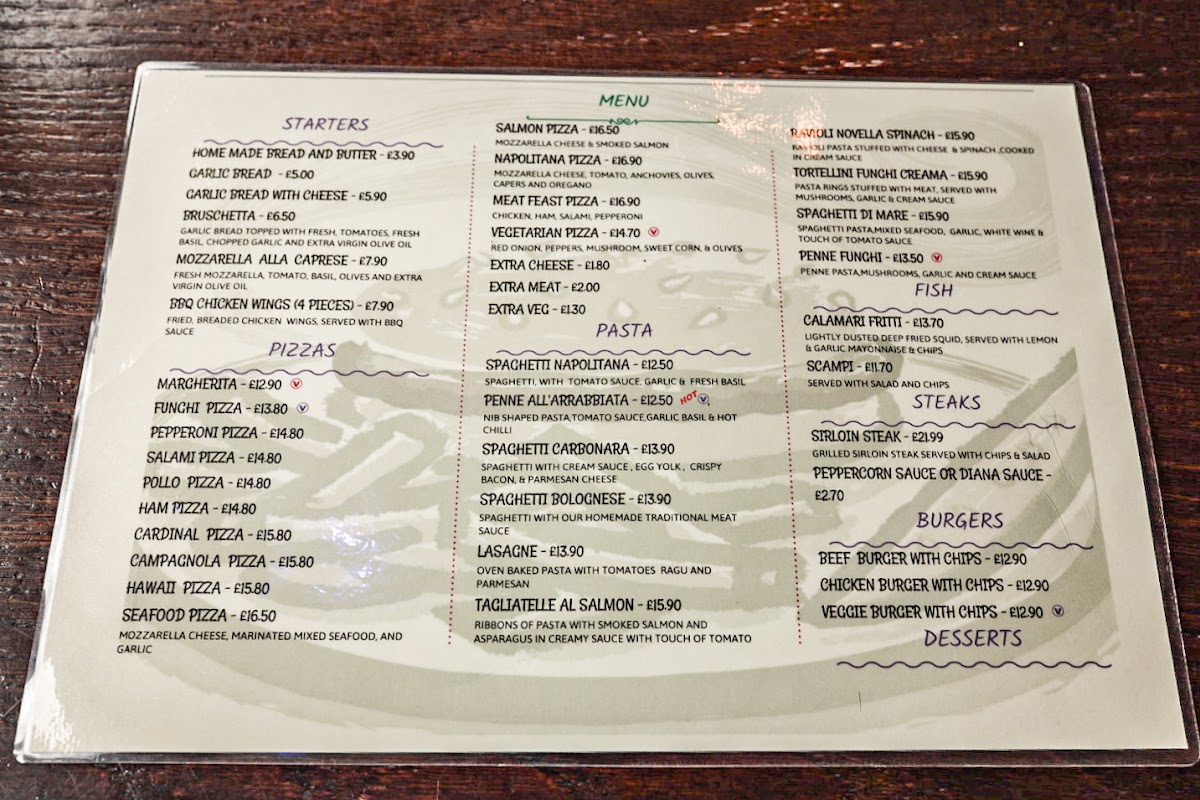 MENU
STARTERS
HOME MADE BREAD AND BUTTER - £3.90
GARLIC BREAD - £5.00
GARLIC BREAD WITH CHEESE - £5.90
BRUSCHETTA - £6.50
GARLIC BREAD TOPPED WITH FRESH, TOMATOES, FRESH
BASIL, CHOPPED GARLIC AND EXTRA VIRGIN OLIVE OIL
MOZZARELLA ALLA CAPRESE - £7.90
FRESH MOZZARELLA, TOMATO, BASIL, OLIVES AND EXTRA
VIRGIN OLIVE OIL
BBQ CHICKEN WINGS (4 PIECES) - £7.90
FRIED, BREADED CHICKEN WINGS, SERVED WITH BBQ
SAUCE
PIZZAS
MARGHERITA - £12.90 V
FUNGHI PIZZA - £13.80 V
PEPPERONI PIZZA - £14.80
SALAMI PIZZA - £14.80
POLLO PIZZA - £14.80
HAM PIZZA - £14.80
CARDINAL PIZZA - £15.80
CAMPAGNOLA PIZZA - £15.80
HAWAII PIZZA - £15.80
SEAFOOD PIZZA - £16.50
MOZZARELLA CHEESE, MARINATED MIXED SEAFOOD, AND
GARLIC
SALMON PIZZA - £16.50
MOZZARELLA CHEESE & SMOKED SALMON
NAPOLITANA PIZZA - £16.90
MOZZARELLA CHEESE, TOMATO, ANCHOVIES, OLIVES,
CAPERS AND OREGANO
MEAT FEAST PIZZA - £16.90
CHICKEN, HAM, SALAMI, PEPPERONI
VEGETARIAN PIZZA - £14.70 V
RED ONION, PEPPERS, MUSHROOM, SWEET CORN, & OLIVES
EXTRA CHEESE - £1.80
EXTRA MEAT - £2.00
EXTRA VEG - £1.30
PASTA
SPAGHETTI NAPOLITANA - £12.50
SPAGHETTI, WITH TOMATO SAUCE, GARLIC & FRESH BASIL
PENNE ALL'ARRABBIATA - £12.50 HOT V
NIB SHAPED PASTA,TOMATO SAUCE,GARLIC BASIL & HOT
CHILLI
SPAGHETTI CARBONARA - £13.90
SPAGHETTI WITH CREAM SAUCE , EGG YOLK , CRISPY
BACON, & PARMESAN CHEESE
SPAGHETTI BOLOGNESE - £13.90
SPAGHETTI WITH OUR HOMEMADE TRADITIONAL MEAT
SAUCE
LASAGNE - £13.90
OVEN BAKED PASTA WITH TOMATOES RAGU AND
PARMESAN
TAGLIATELLE AL SALMON - £15.90
RIBBONS OF PASTA WITH SMOKED SALMON AND
ASPARAGUS IN CREAMY SAUCE WITH TOUCH OF TOMATO
RAVIOLI NOVELLA SPINACH - £15.90
RAVIOLI PASTA STUFFED WITH CHEESE & SPINACH ,COOKED
IN CREAM SAUCE
TORTELLINI FUNGHI CREAMA - £15.90
PASTA RINGS STUFFED WITH MEAT, SERVED WITH
MUSHROOMS, GARLIC & CREAM SAUCE
SPAGHETTI DI MARE - £15.90
SPAGHETTI PASTA,MIXED SEAFOOD, GARLIC, WHITE WINE &
TOUCH OF TOMATO SAUCE
PENNE FUNGHI - £13.50 V
PENNE PASTA,MUSHROOMS, GARLIC AND CREAM SAUCE
FISH
CALAMARI FRITTI - £13.70
LIGHTLY DUSTED DEEP FRIED SQUID, SERVED WITH LEMON
& GARLIC MAYONNAISE & CHIPS
SCAMPI - £11.70
SERVED WITH SALAD AND CHIPS
STEAKS
SIRLOIN STEAK - £21.99
GRILLED SIRLOIN STEAK SERVED WITH CHIPS & SALAD
PEPPERCORN SAUCE OR DIANA SAUCE -
£2.70
BURGERS
BEEF BURGER WITH CHIPS - £12.90
CHICKEN BURGER WITH CHIPS - £12.90
VEGGIE BURGER WITH CHIPS - £12.90 V
DESSERTS